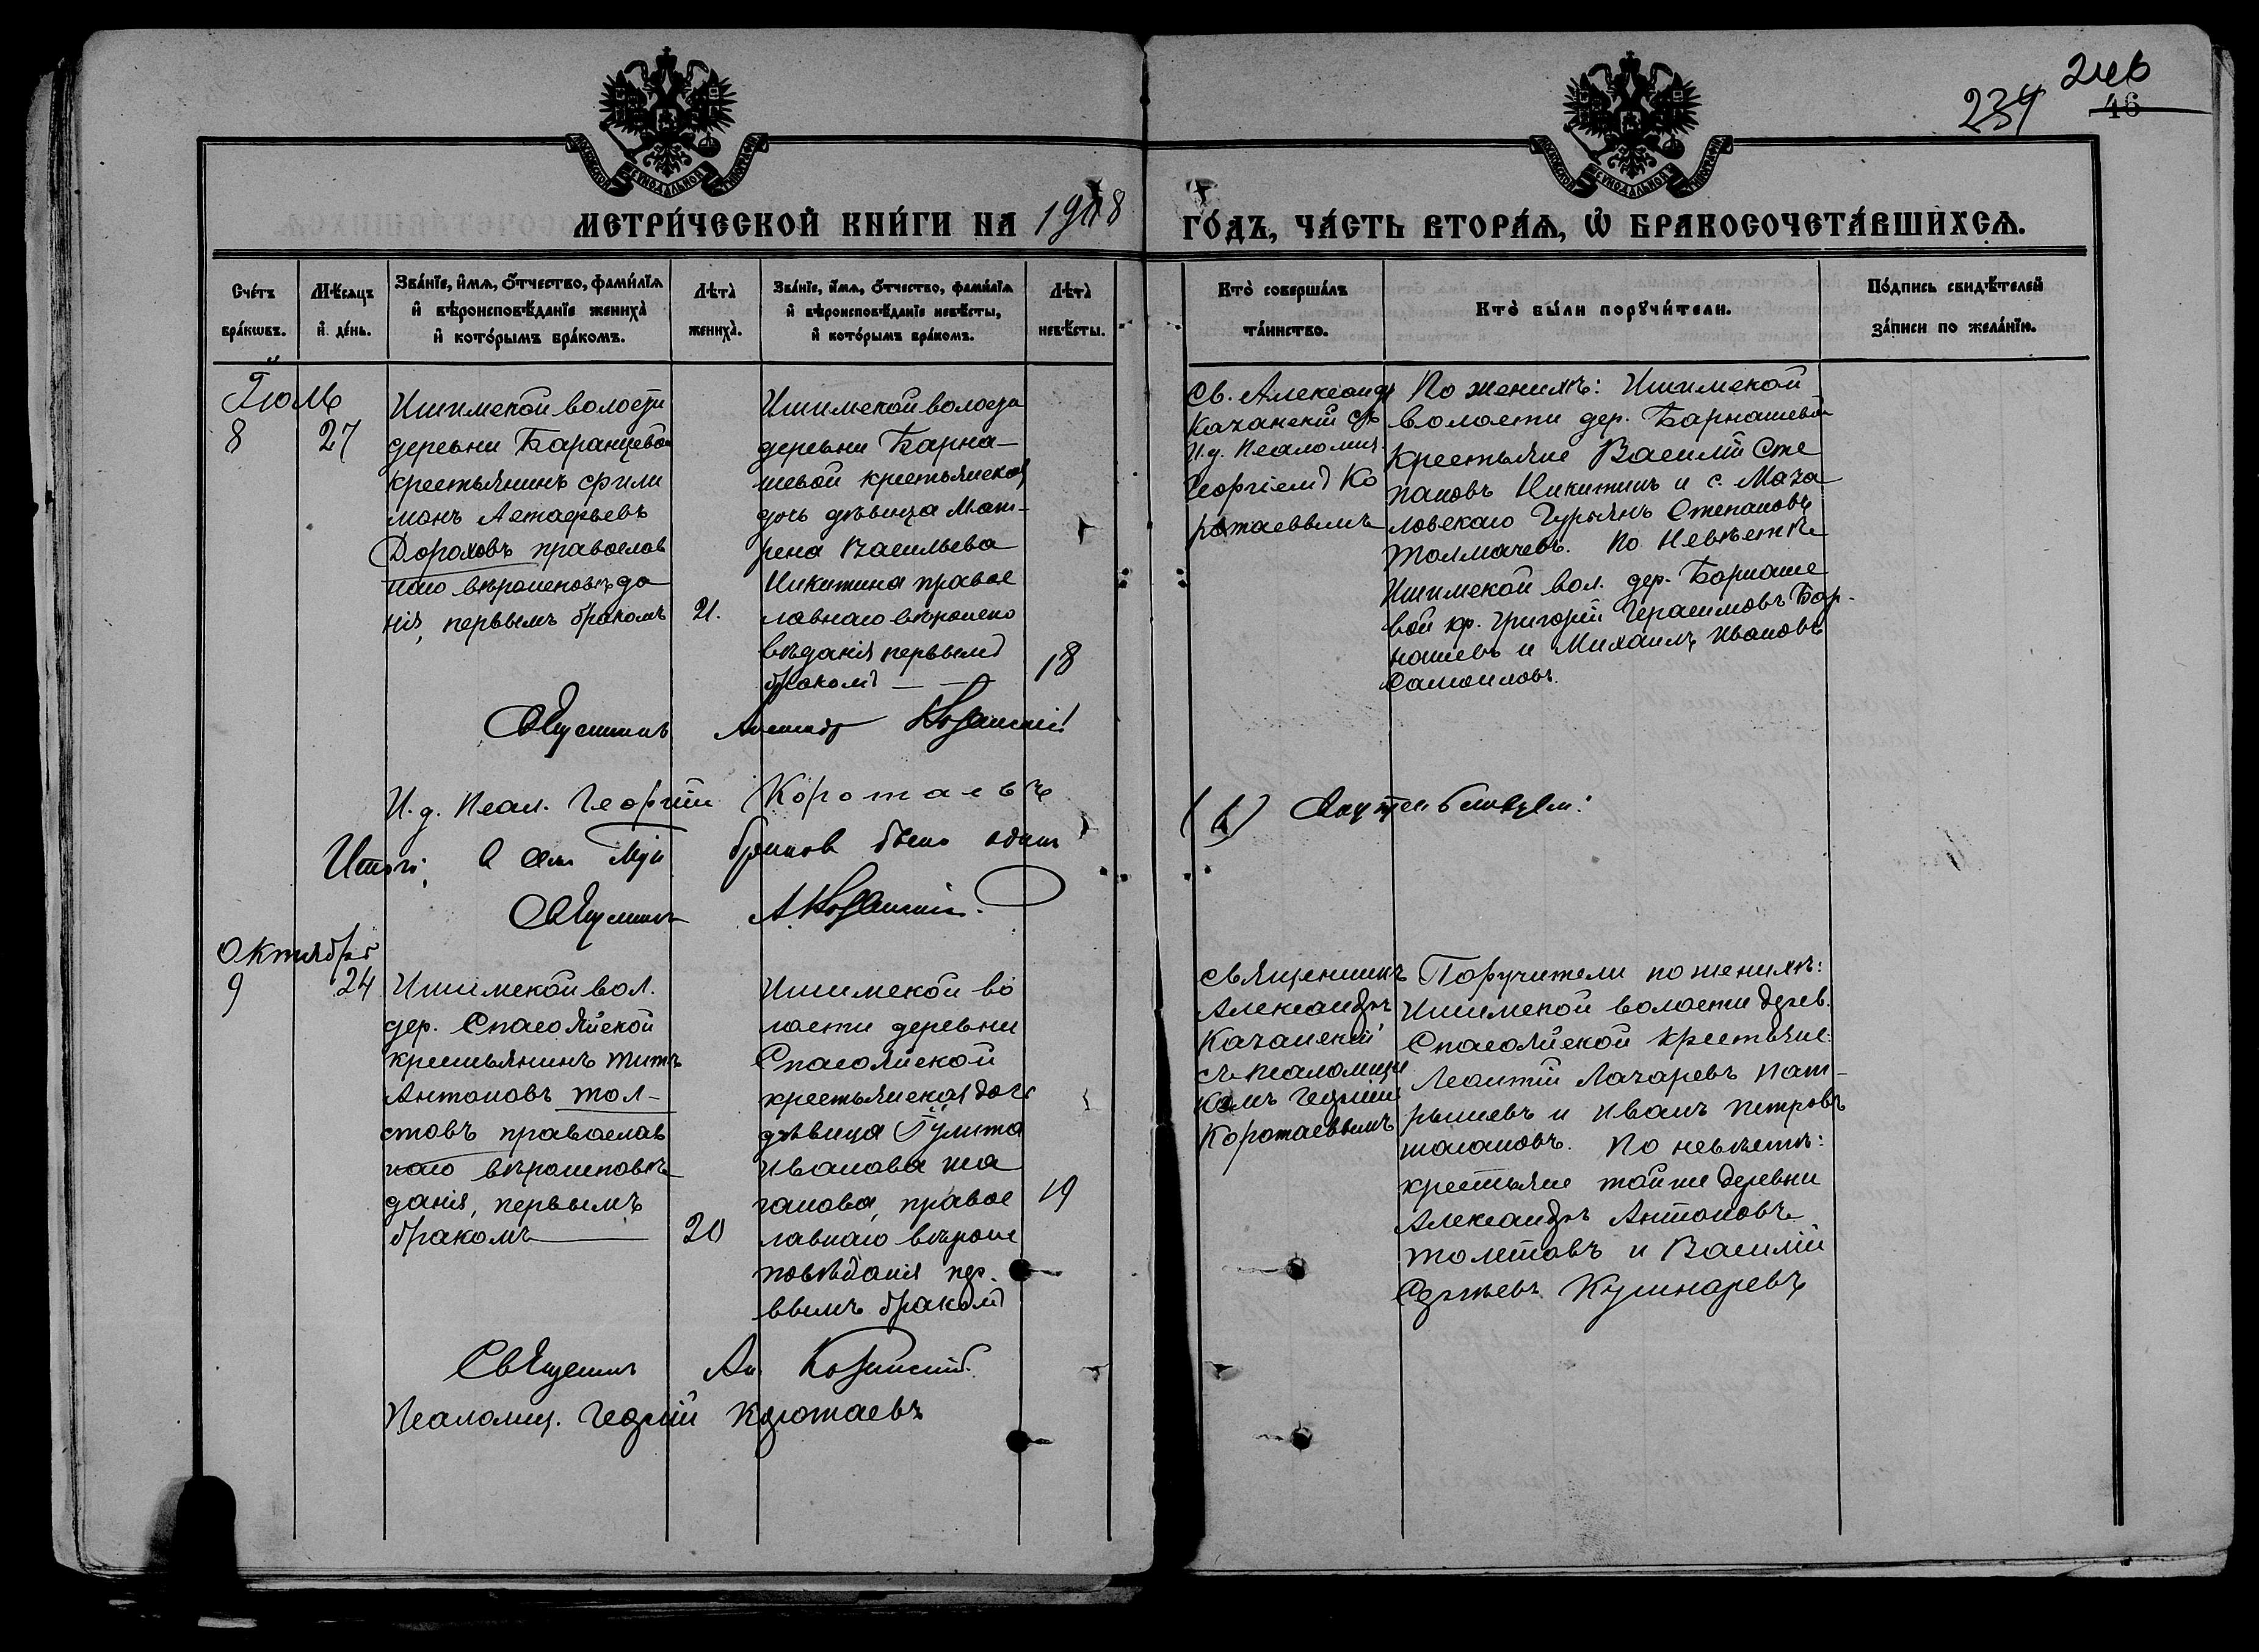 246
234
46
МОСКОВСКОЙ СѴНОДАЛЬНОЙ ТИПОГРАФІИ
МОСКОВСКОЙ СѴНОДАЛЬНОЙ ТИПОГРАФІИ
МЕТРИ́ЧЕСКОЙ КНИ́ГИ НА 1918 ГО́ДЪ, ЧА́СТЬ ВТОРА́Ѧ, Ѽ БРАКОСОЧЕТА́ВШИХСѦ.
Сче́тъ бра́кѡвъ.
Мѣ́сѧцъ и҆ де́нь.
Зва́нїе, и҆́мѧ, ѻ҆́тчество, фами́лїѧ
и҆ вѣроисповѣ́данїе жениха̀
и҆ кото́рымъ бра́комъ.
Лѣ́та̀ жениха̀.
Зва́нїе, и҆́мѧ, ѻ҆́тчество, фами́лїѧ
и҆ вѣроисповѣ́данїе невѣ́сты,
и҆ кото́рымъ бра́комъ.
Лѣ́та̀ невѣ́сты.
Кто̀ соверша́лъ
та́инство.
Кто̀ бы́ли порꙋчи́тели.
По́дпись свидѣ́телей
за́писи по жела́нїю.
Іюль
8
27
Ишимской волости
деревни Баранцевой
крестьянинъ Фили
монъ Астафьевъ
Дороховъ православ
наго вѣроисповѣда
нія, первымъ бракомъ
21.
Ишимской волости
деревни Барна-
шевой крестьянская
дочь дѣвица Мат-
рена Васильева
Никитина правос
лавнаго вѣроиспо
вѣданія первымъ
бракомъ — —
18
Св. Александръ
Казанскій съ
И.д. Псаломщ.
Георгіемъ Ко
ротаевымъ
По женихѣ: Ишимской
волости дер. Барнашевой
крестьяне Василій Сте
пановъ Никитинъ и с. Маза
ловскаго Гурьянъ Степановъ
Толмачевъ. По Невѣстѣ
Ишимской вол. дер. Барнаше
вой кр. Григорій Герасимовъ Бар-
нашевъ и Михаилъ Ивановъ
Самоиловъ.
Священникъ Александръ Казанскій
И.д. Псал. Георгій Коротаевъ
Итого: браковъ было одинъ
Священникъ А. Казанскій.
Октябрь
9
24
Ишимской вол.
дер. Спасояйской
крестьянинъ Титъ
Антоновъ Тол-
стовъ православ
наго вѣроисповѣ
данія, первымъ
бракомъ
20
Ишимской во
лости деревни
Спасояйской
крестьянская дочь
дѣвица Іулита
Иванова Ша
ганова, правос
лавнаго вѣроис
повѣданія пер-
вымъ бракомъ
19
Священникъ
Александръ
Казанскій
съ псаломщи
комъ Георгіемъ
Коротаевымъ
Поручители по женихѣ:
Ишимской волости дерев.
Спасояйской крестьяне:
Леонтій Лазаревъ Пат-
рышевъ и Иванъ Петровъ
Шагановъ. По невѣстѣ:
крестьяне той же деревни
Александръ Антоновъ
Толстовъ и Василій
Сергѣевъ Кушнаревъ
Священникъ Ал. Казанскій.
Псаломщ. Георгій Коротаевъ